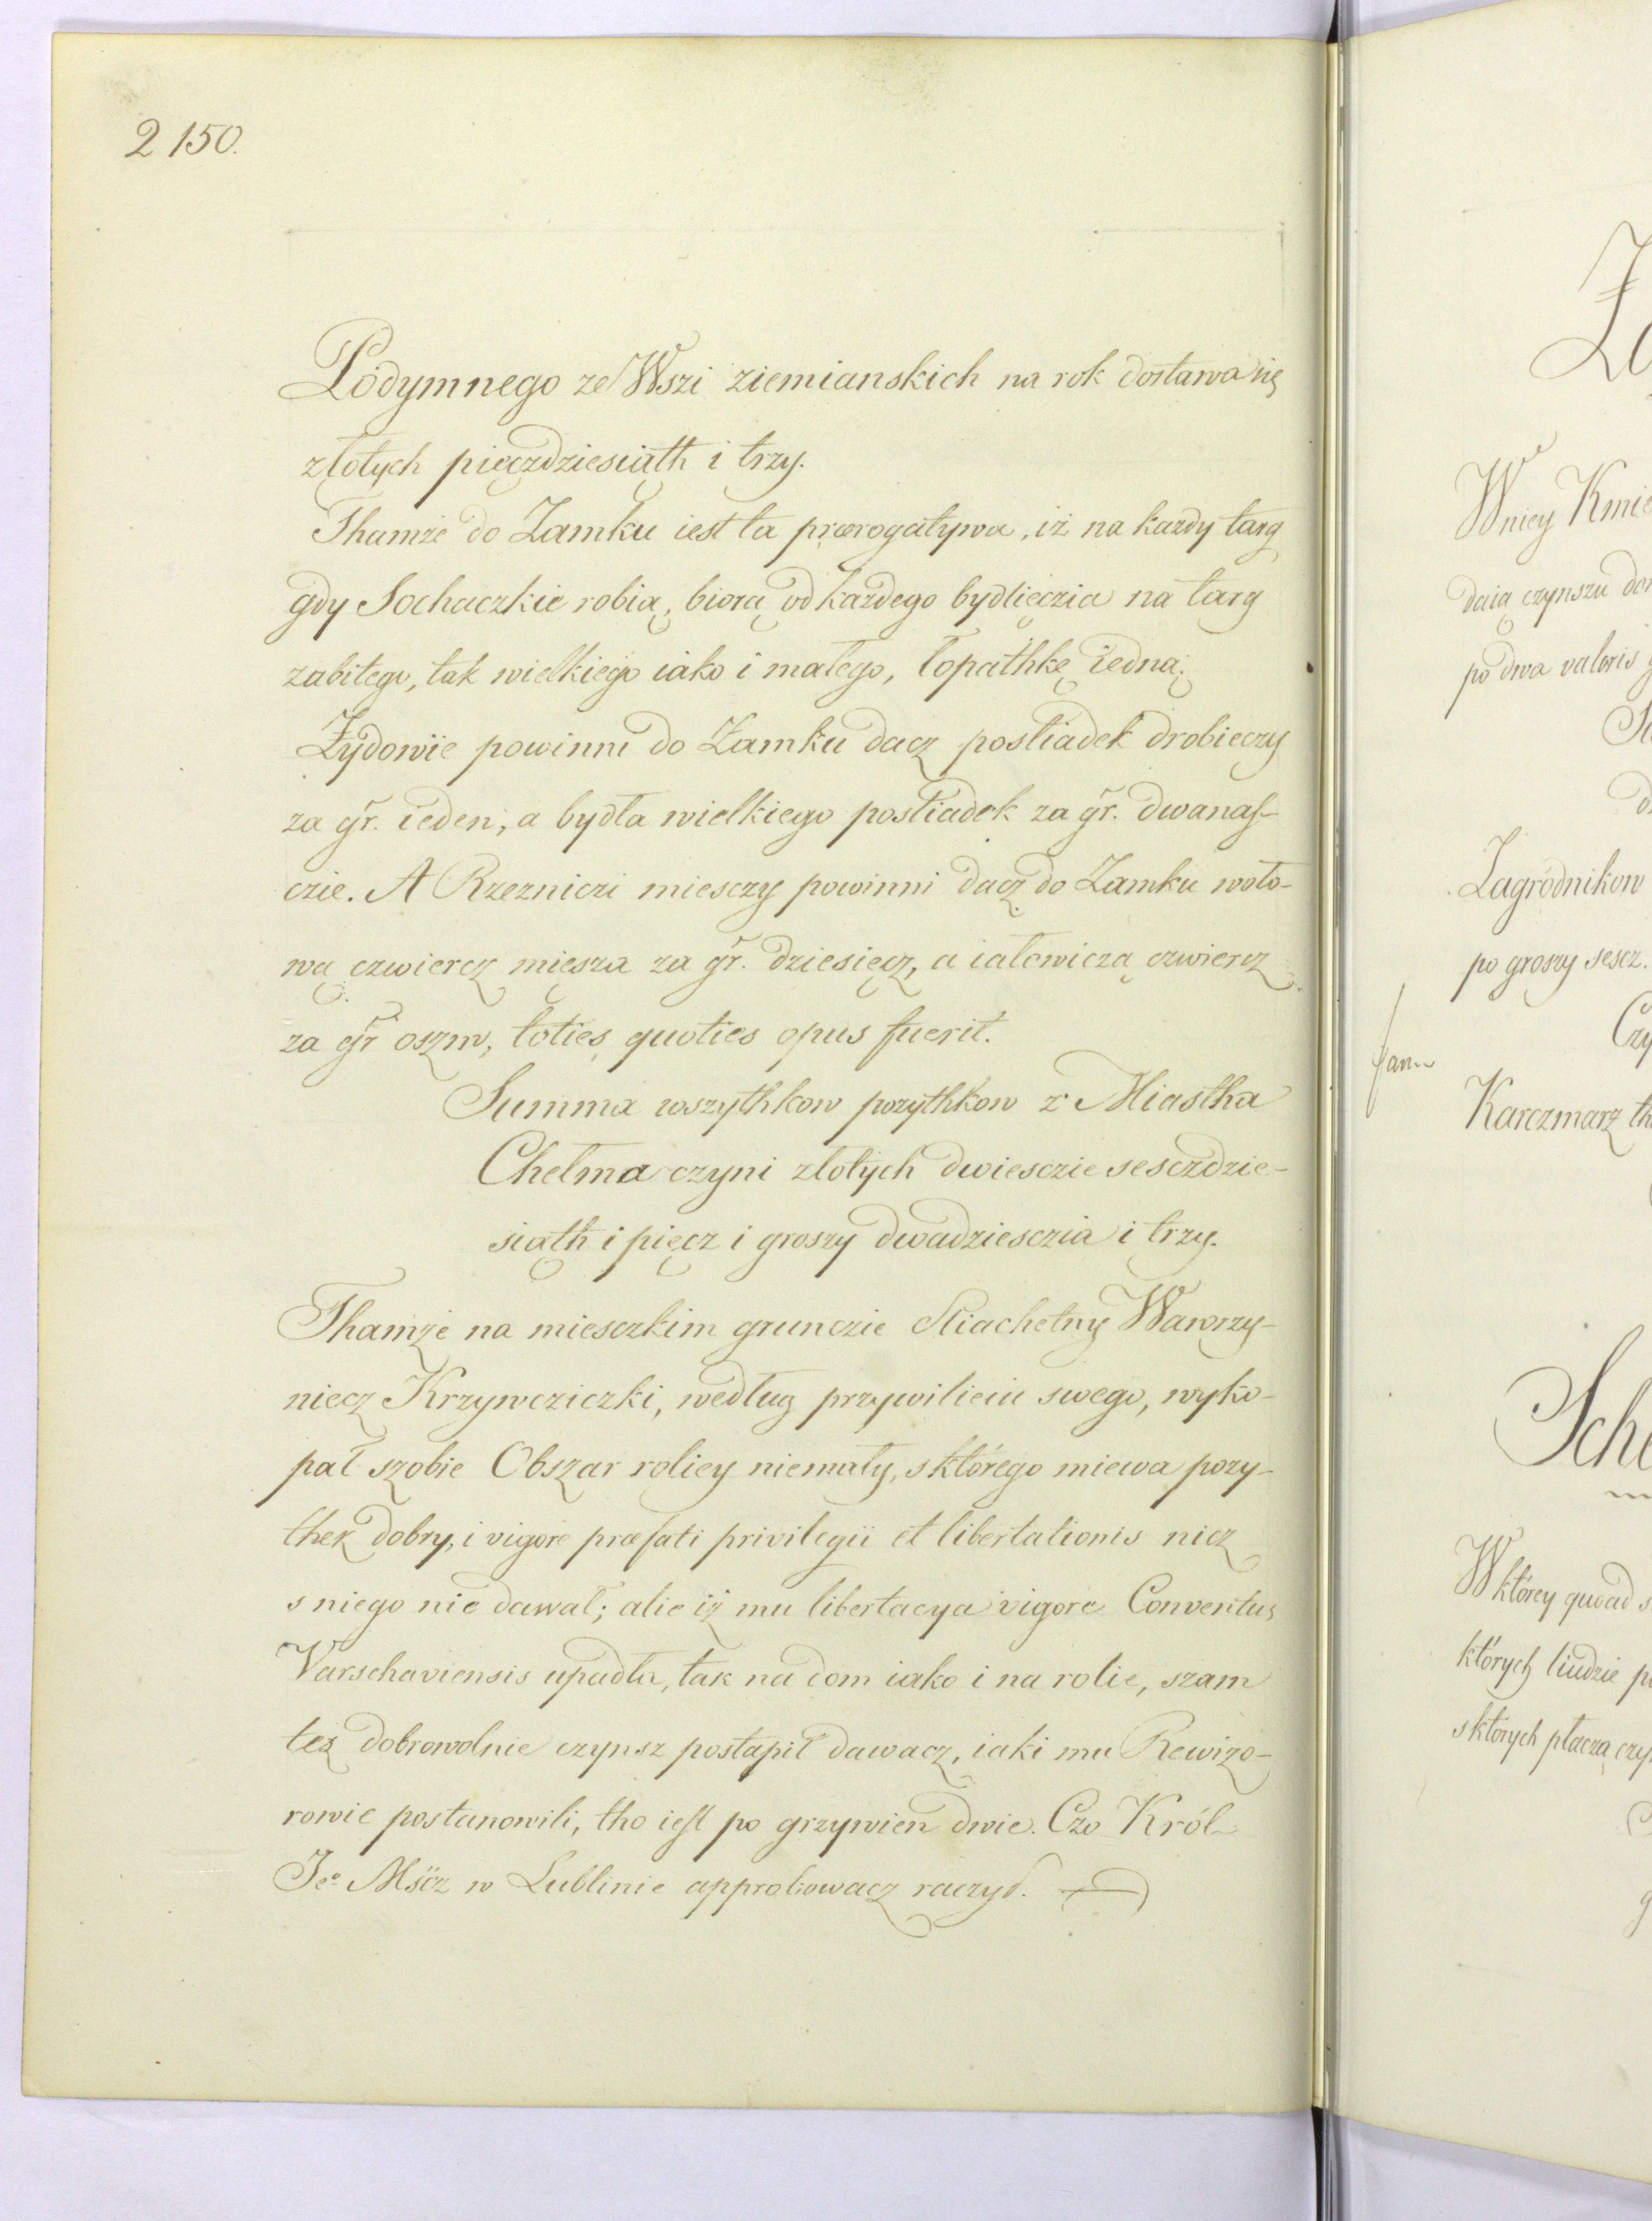 2150.
Podymnego ze Wszi ziemianskich na rok dostawa się
złotych pięczdziesiąth i trzy.
Thamże do Zamku iest ta prærogatywa, iż na każdy targ
gdy Sochaczkie robią, biorą od każdego bydlięczia na targ
zabitego, tak wielkiego iako i małego, łopathkę iedną.
Żydowie powinni do Zamku dacz posliadek drobieczy
za gr. ieden, a bydła wielkiego posliadek za gr. dwanas-
czie. A Rzezniczi miesczy powinni dacz do Zamku woło-
wą czwiercz mięsza za gr. dziesięcz, a iałowiczą czwiercz
za gr oszm, toties quoties opus fuerit.
Summa wszythkow pozythkow z Miastha
Chełma czyni złotych dwiesczie sesczdzie-
siąth i pięcz i groszy dwadziesczia i trzy.
Thamże na miesczkim grunczie Sliachetny Wawrzy-
niecz Krzywcziczki, według przywilieiu swego, wyko-
pał szobie Obszar roliey niemały, s którego miewa pozy-
thek dobry, i vigore præfati privilegii et libertationis nicz
s niego nie dawał; alie iż mu libertacya vigore Conventus
Varschaviensis upadła, tak na dom iako i na rolie, szam
tez dobrowolnie czynsz postąpił dawacz, iaki mu Rewizo-
rowie postanowili, tho iest po grzywien dwie. Czo Król
Je<sup>o</sup> Mścz w Lublinie approbowacz raczył.
W niey Kmie
daią czynszu
po dwa valoris
Zagrodnikow
po groszy sescz.
Czy
Karczmarz th
Sch
W którey quoad s
których liudzie p
s których płaczą czy